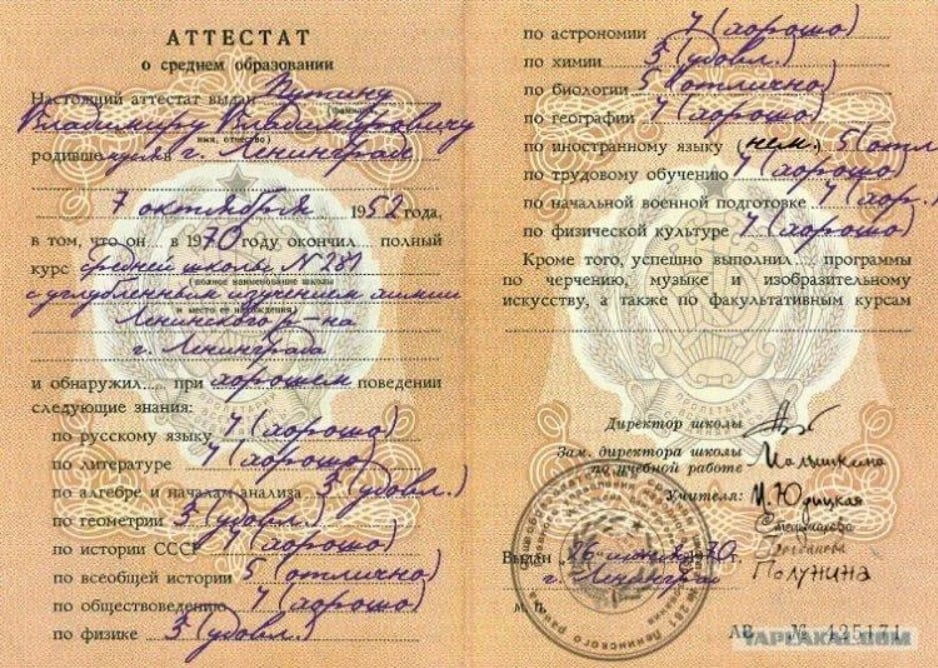 АТТЕСТАТ
о среднем образовании
Настоящий аттестат выдан Путину
Владимиру Владимировичу
имя, отчество)
родивше муся в г. Ленинграде
7 октября 1952 года,
в том, что он... в 1970 году окончил... полный
курс средней школы N 281
(полное наименование школы
с углубленным изучением химии
и место ее нахождения)
Ленинского р-на
г. Ленинграда
и обнаружил.... при хорошем поведении
следующие знания:
по русскому языку 4 (хорошо)
по литературе 4 (хорошо)
по алгебре и началам анализа 3 (удовл.)
по геометрии 3 (удовл.)
по истории СССР 4 (хорошо)
по всеобщей истории 5 (отлично)
по обществоведению 4 (хорошо)
по физике 3 (удовл.)
по астрономии 4 (хорошо)
по химии 3 (удовл.)
по биологии 5 (отлично)
по географии 4 (хорошо)
по иностранному языку (нем.) 5 (отл
по трудовому обучению 4 (хорошо)
по начальной военной подготовке 4 (хор.)
по физической культуре 4 (хорошо)
Кроме того, успешно выполнил... программы
по черчению, музыке и изобразительному
искусству, а также по факультативным курсам
Директор школы
Зам. директора школы
по учебной работе Малышкина
Учителя: И. Юрицкая
Богданова
Полунина
Выдан 26 1970 г.
г. Ленинград
М. П.
АВ № 425171
YAPLAKAL.COM